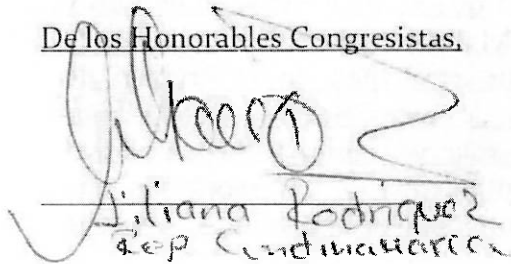 De los Honorables Congresistas,
Liliana Rodriguez
Rep Cundinamarca